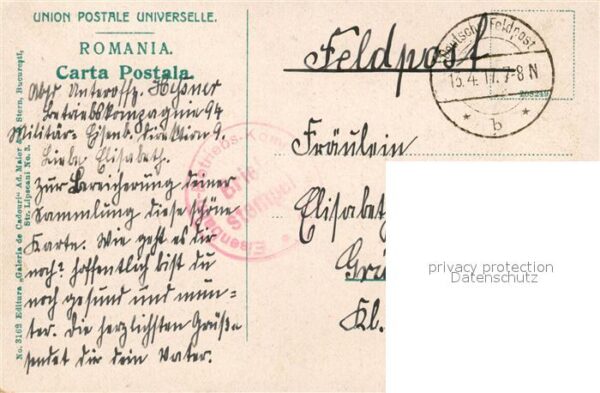 UNION POSTALE UNIVERSELLE.
ROMANIA.
Carta Postala
Abs. Unteroffz. Heßner
Betriebskompagnie 94
Militär= Eisenb. Direktion 9.
Liebe Elisabeth.
Zur Bereicherung deiner
Sammlung diese schöne
Karte. Wie geht es dir
noch? Hoffentlich bist du
noch gesund und mun-
ter. Die herzlichsten Grüße
sendet dir dein Vater.
No. 3162 Editura „Galeria de Cadouri" Ad. Maier & D. Stern, Bucureşti,
Str. Lipscani No. 3.
Eisenbahn-Betriebs-Kom
Brief
Stempel
Feldpost
Deutsche Feldpost
15.4.17. 7-8 N
b
Fräulein
Elisabeth
Gri
Kl.
privacy protection
Datenschutz